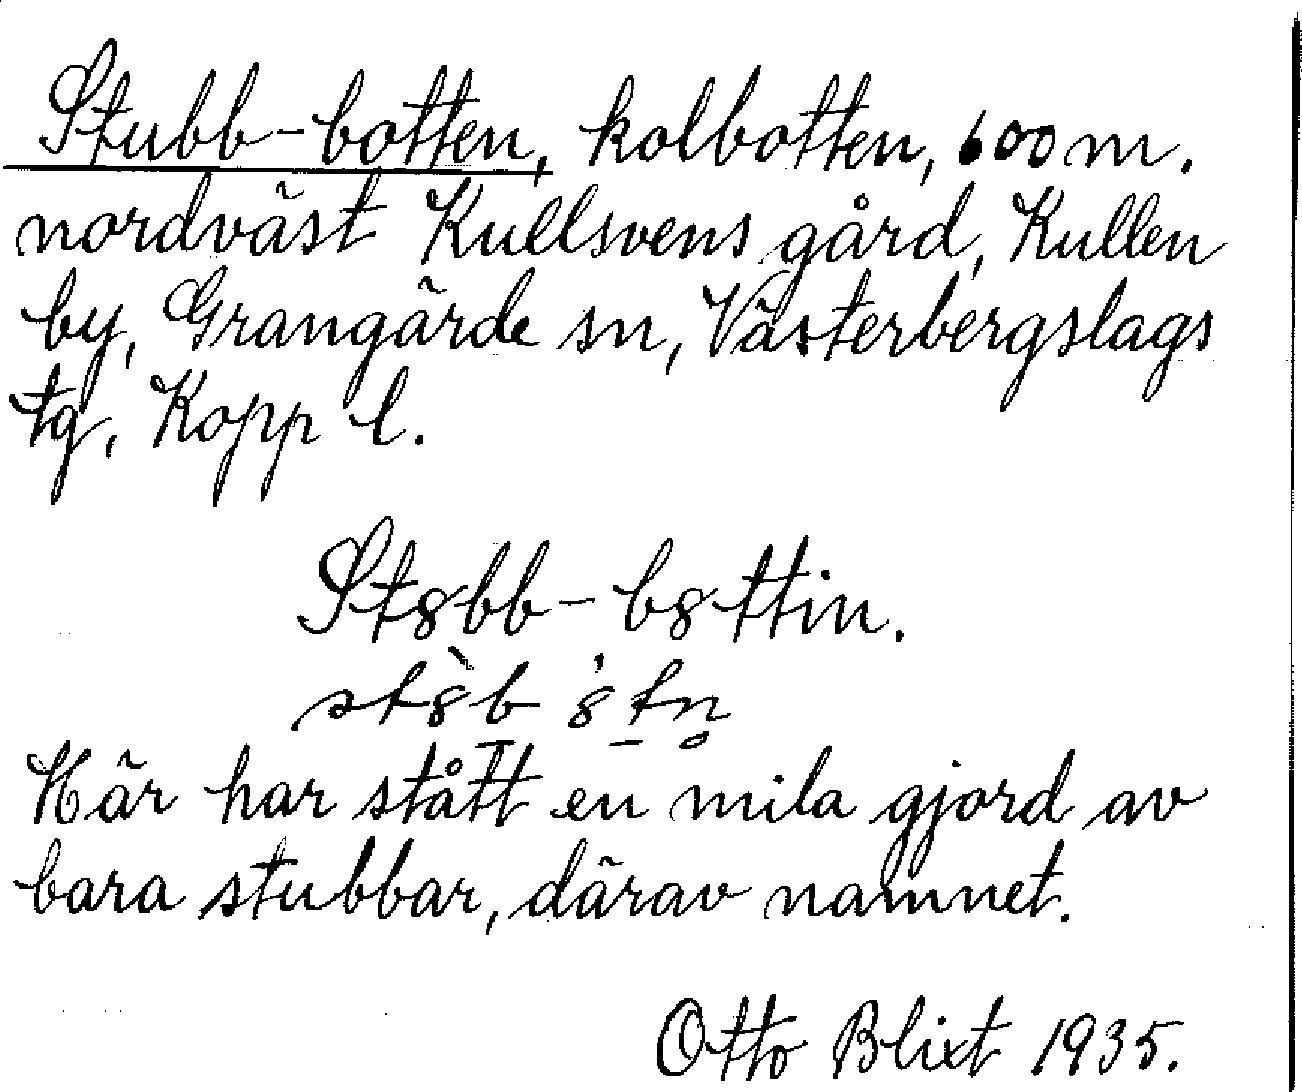 Stubb-botten, kolbotten, 600 m.
nordväst Kullsvens gård, Kullen
by, Grangärde sn, Västerbergslags
tg, Kopp l.
St8bb-b8ttin.
st8̀b 8̍t̠n̥
Här har stått en mila gjord av
bara stubbar, därav namnet.
Otto Blixt 1935.